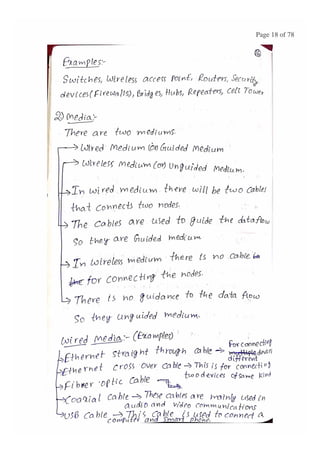 Page 18 of 78
Examples:-
Switches, wireless access point, Routers, Security
devices(Firewalls), Bridges, Hubs, Repeaters, Cell Tower
2) Media:-
There are two mediums
→ Wired Medium (or) Guided Medium
→ Wireless Medium (or) Unguided Medium.
→ In wired medium there will be two cables
that connects two nodes.
→ The cables are used to guide the dataflow
so they are Guided medium
→ In wireless medium there is no cable
for connecting the nodes.
→ There is no guidance to the data flow
so they unguided medium.
Wired Media:- (Examples)
→ Ethernet straight through cable → For connecting
different
→ Ethernet cross over cable → This is for connecting
two devices of same kind
→ Fiber optic cable
→ Coaxial cable → These cables are mainly used in
audio and video communications
→ USB cable → This cable is used to connect a
computer and smart phone